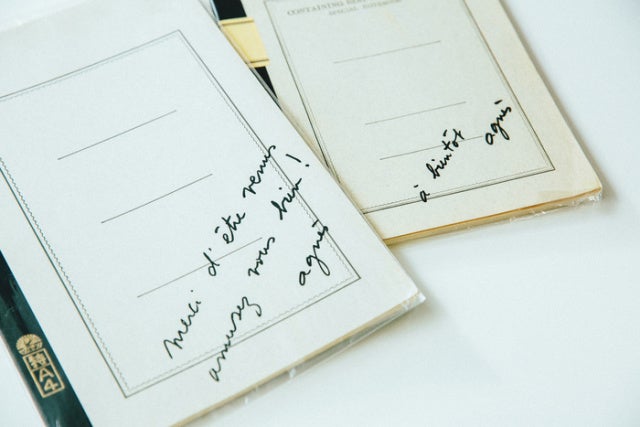 merci d'être venus
amusez vous bien !
agnès
A4
CONTAINING
SPECIAL
à bientôt
agnès